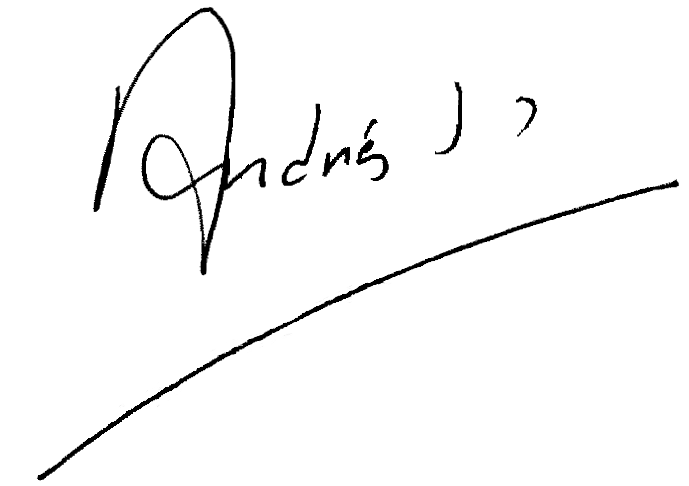 Andrés J